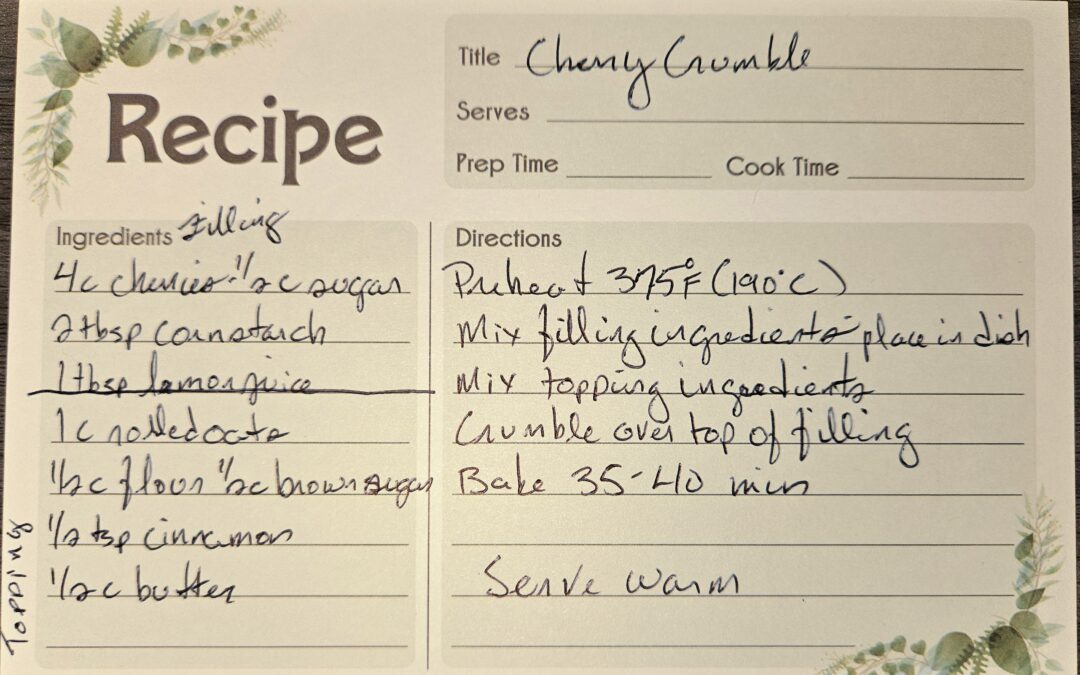 Recipe
Title Cherry Crumble
Serves
Prep Time Cook Time
Ingredients Filling
4c cherries - 1/2 c sugar
2 tbsp cornstarch
1 tbsp lemon juice
1c rolled oats
1/2c flour 1/2c brown sugar
1/2 tsp cinnamon
1/2 c butter
Topping
Directions
Preheat 375°F (190°C)
Mix filling ingredients - place in dish
Mix topping ingredients
Crumble over top of filling
Bake 35-40 min
Serve warm